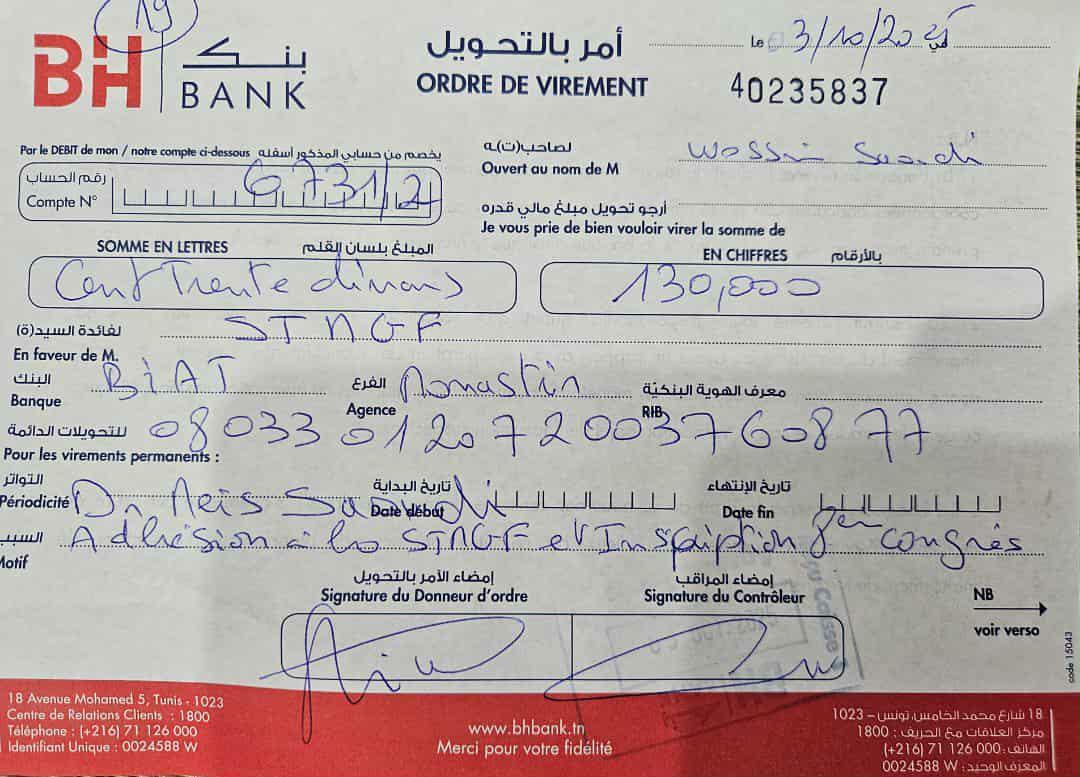 19
BH BANK بنك
أمر بالتحويل
ORDRE DE VIREMENT
Le 3/10/2025 في
40235837
Par le DEBIT de mon / notre compte ci-dessous يخصم من حسابي المذكور أسفله
رقم الحساب
Compte N° 6731/2
لصاحب(ت)ـه
Ouvert au nom de M Wassim Saandi
أرجو تحويل مبلغ مالي قدره
Je vous prie de bien vouloir virer la somme de
SOMME EN LETTRES المبلغ بلسان القلم
EN CHIFFRES بالأرقام
Cent Trente dinars
130,000
لفائدة السيد(ة) STNGF
En faveur de M.
البنك BIAT الفرع Monastir معرف الهوية البنكيّة
Banque Agence RIB
للتحويلات الدائمة 08033 0120720037608 77
Pour les virements permanents :
التواتر تاريخ البداية تاريخ الإنتهاء
Périodicité Dr Neis Saandi Date début Date fin
السبب Adhésion à la STNGF et Inscription 8em congrès
Motif
إمضاء الأمر بالتحويل
Signature du Donneur d'ordre
إمضاء المراقب
Signature du Contrôleur
NB
voir verso
code 15043
Caisse
18 Avenue Mohamed 5, Tunis - 1023
Centre de Relations Clients : 1800
Téléphone : (+216) 71 126 000
Identifiant Unique : 0024588 W
www.bhbank.tn
Merci pour votre fidélité
18 شارع محمد الخامس، تونس – 1023
مركز العلاقات مع الحريف : 1800
الهاتف : 000 126 71 (216+)
المعرف الوحيد : 0024588 W